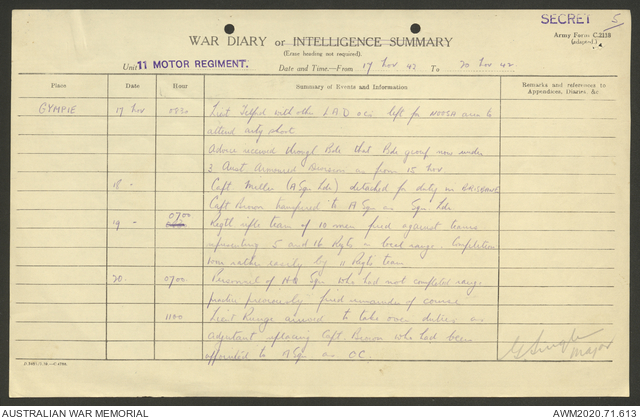 SECRET 5
Army Form C.2118
(adapted.)
WAR DIARY or INTELLIGENCE SUMMARY
(Erase heading not required).
Unit 11 MOTOR REGIMENT.
Date and Time—From 17 Nov 42 To 20 Nov 42
Place Date Hour Summary of Events and Information Remarks and references to Appendices, Diaries, &c.
GYMPIE 17 Nov 0830 Lieut with other L.A.D. left for area to
attend
Advice received through Bde that Bde group now under
3 Aust Armoured Division as from 15 Nov
18 - Capt. Miller (A Sqn Ldr) detached for duty in BRISBANE
Capt. Brown transferred to A Sqn as Sqn Ldr
19 - 0700 Regtl rifle team of 10 men fired against teams
representing 5 and 16 Regts on local range. Competition
won rather easily by 11 Regt's team.
20. 0700 Personnel of HQ Sqn who had not completed range
practice previously fired remainder of course.
1100 Lieut Range arrived to take over duties as
adjutant replacing Capt. Brown who had been
appointed to A Sqn as OC.
Major
AUSTRALIAN WAR MEMORIAL
AWM2020.71.613